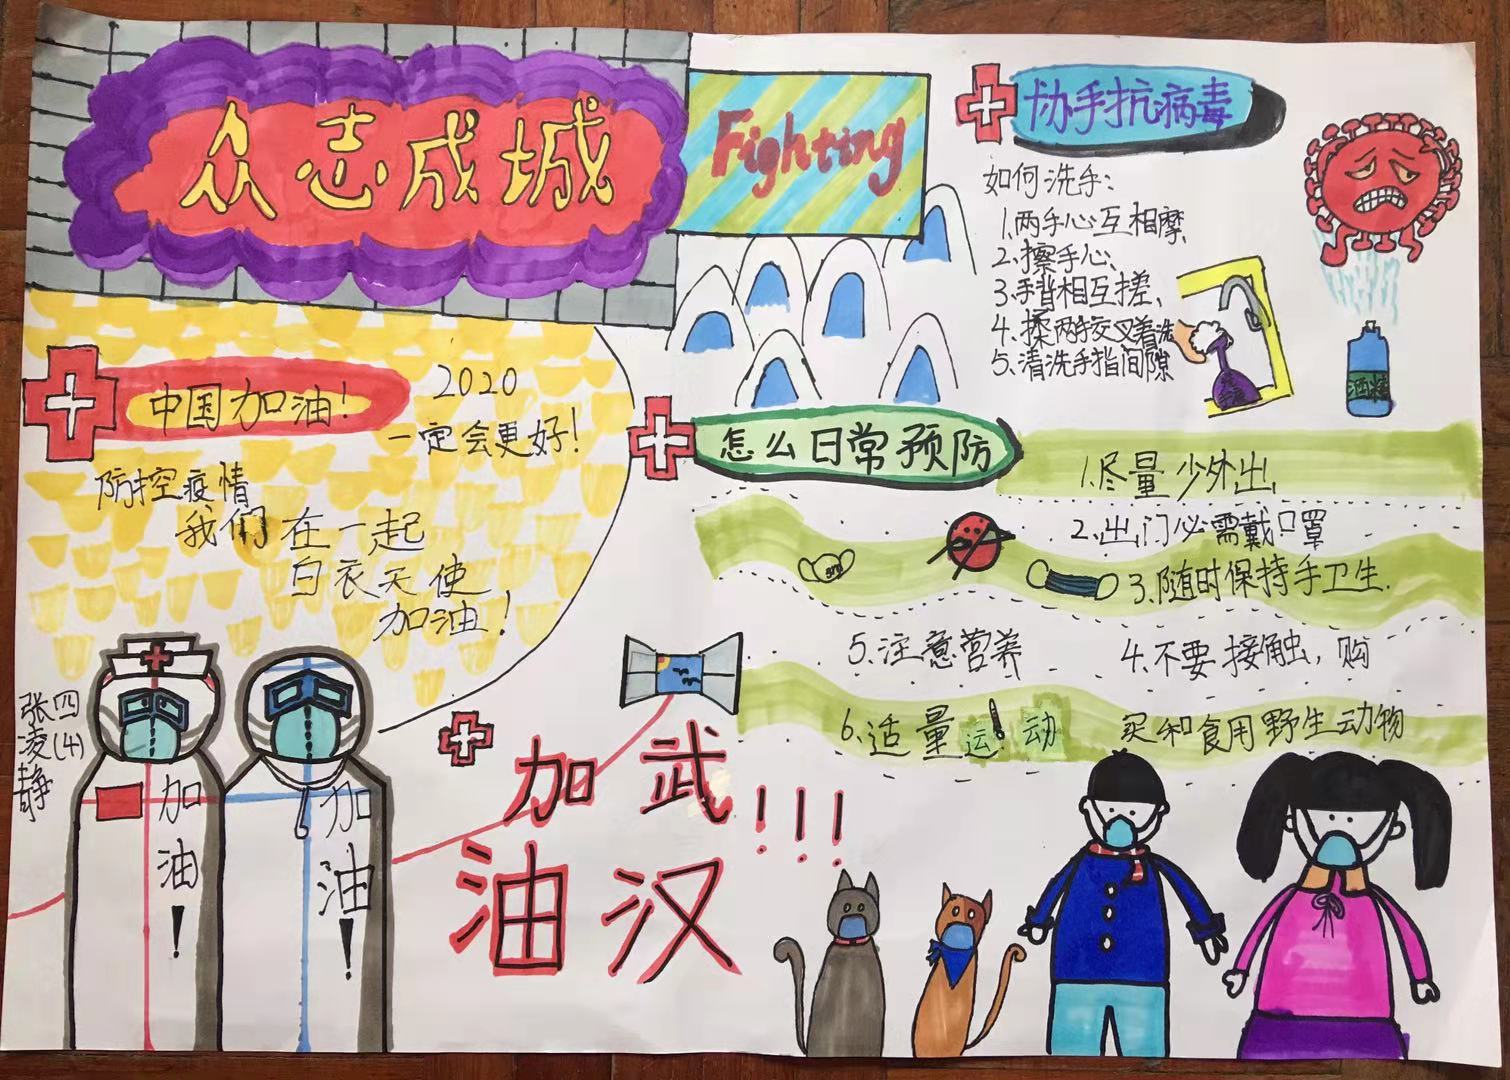 众志成城
Fighting
协手抗病毒
如何洗手:
1.两手心互相摩、
2.擦手心、
3.手背相互搓、
4.揉两手交叉着洗
5.清洗手指间隙
酒精
中国加油!
2020
一定会更好!
防控疫情
我们在一起
白衣天使
加油!
怎么日常预防
1.尽量少外出
2.出门必需戴口罩
3.随时保持手卫生.
4.不要接触,购
买和食用野生动物
5.注意营养
6.适量运动
四(4)
张凌静
加油!
加油!
武汉
加油
!!!